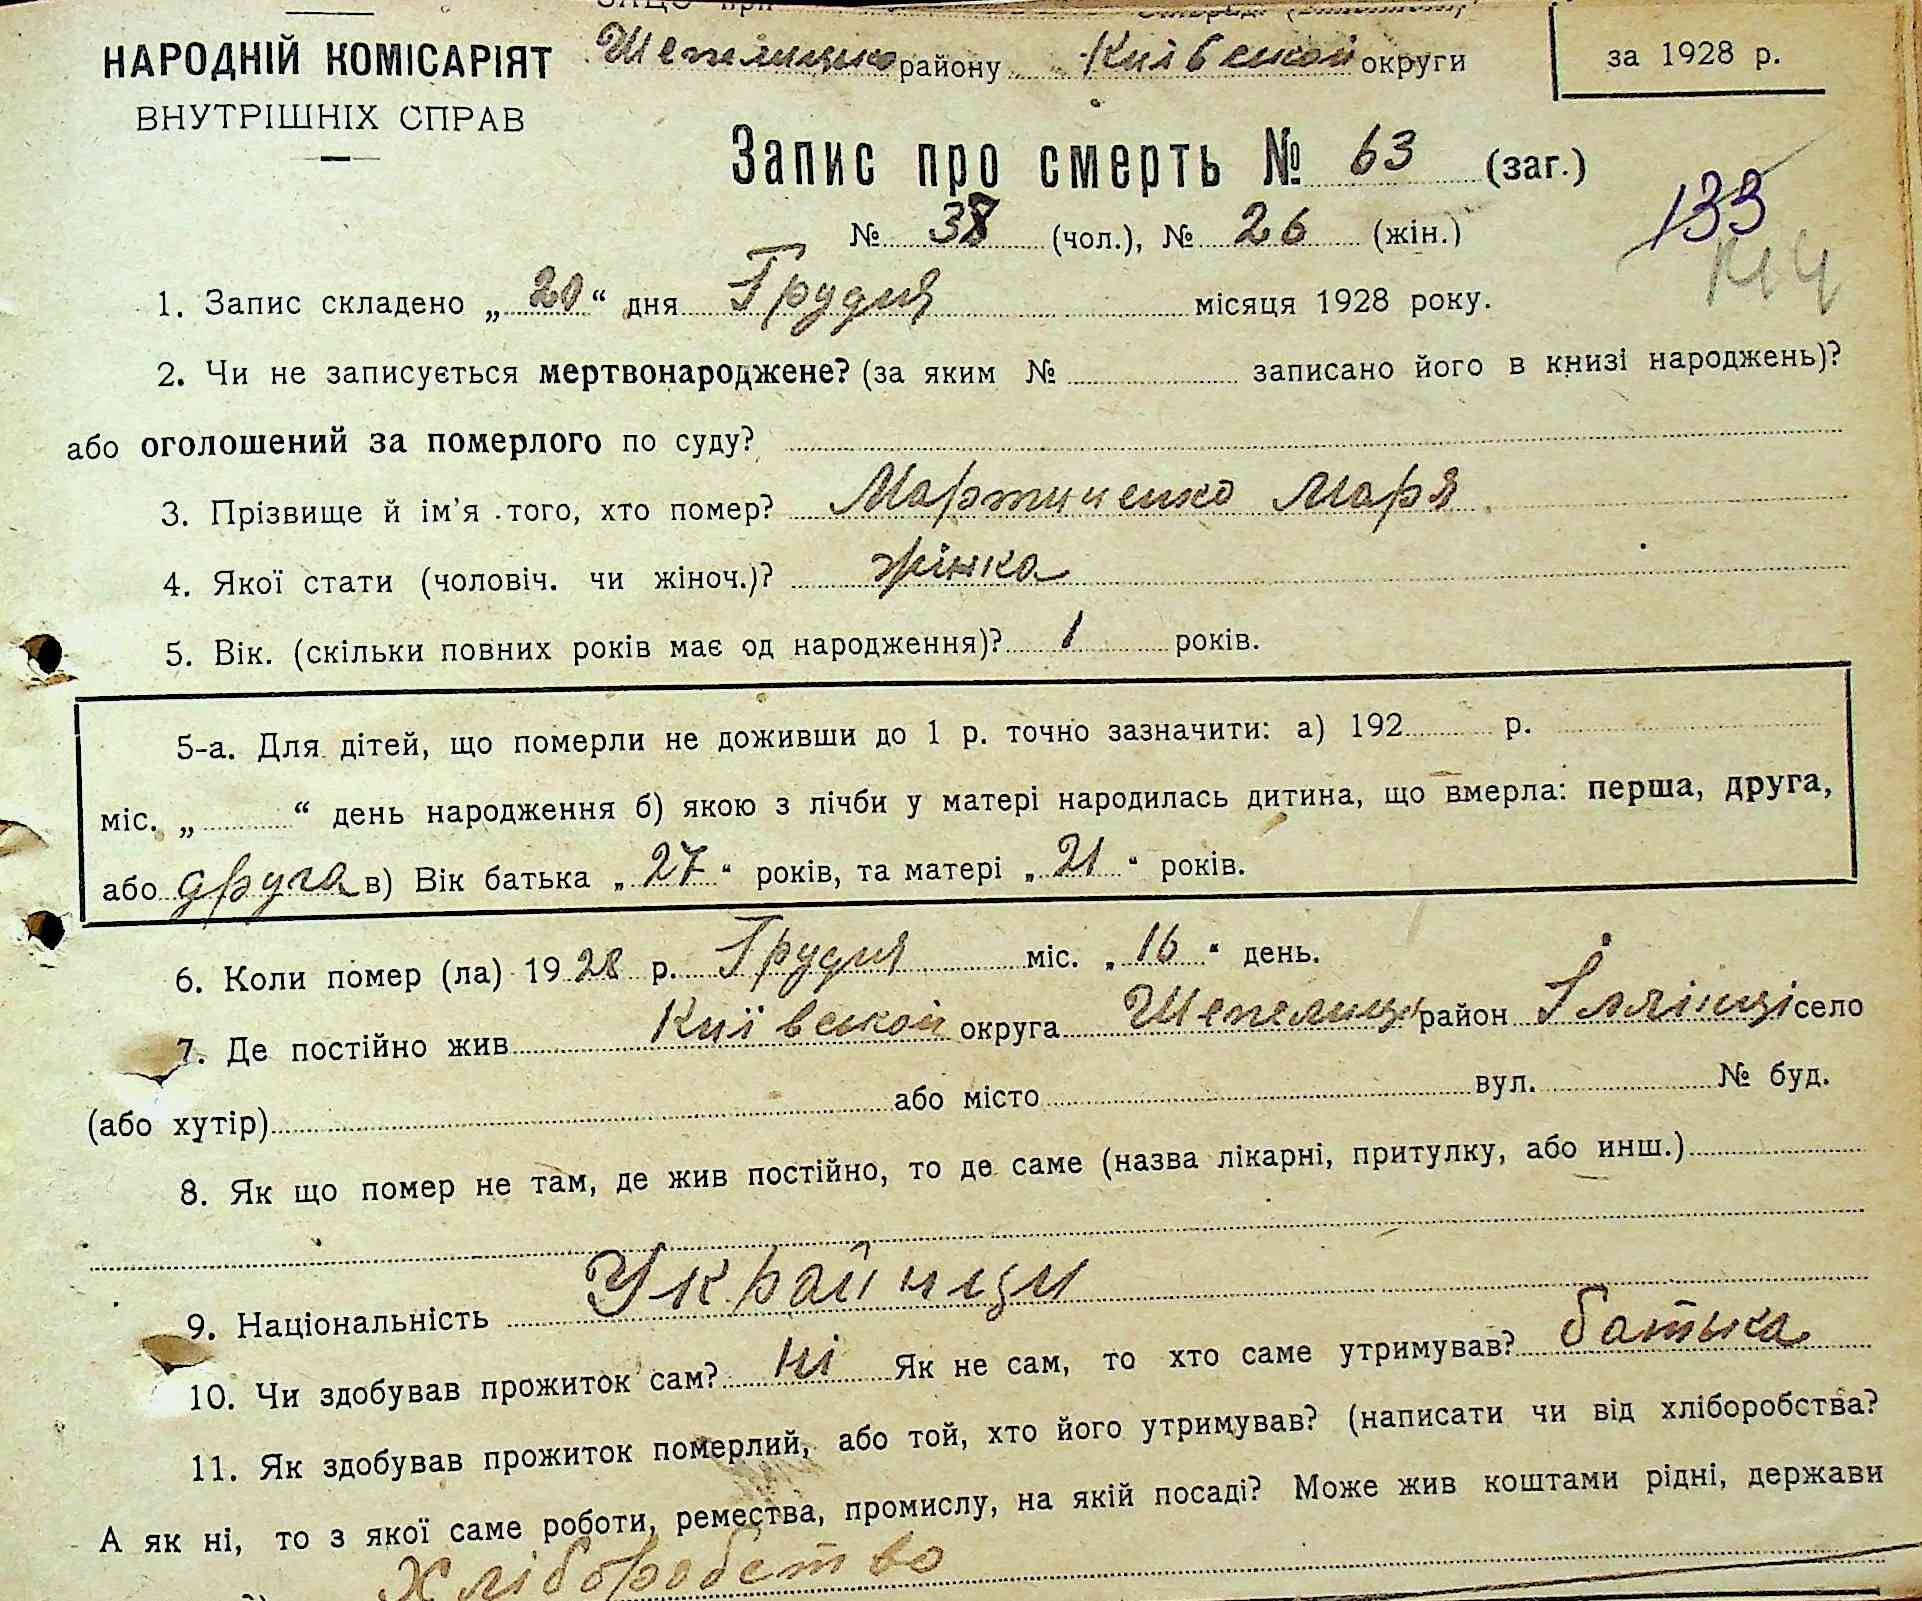 ЗАЦС при
НАРОДНІЙ КОМІСАРІЯТ
ВНУТРІШНІХ СПРАВ
Шепелицько району Київської округи
за 1928 р.
Запис про смерть № 63 (заг.)
133
№ 38 (чол.), № 26 (жін.)
1. Запис складено „20“ дня Грудня місяця 1928 року.
2. Чи не записується мертвонароджене? (за яким № записано його в книзі народжень)?
або оголошений за померлого по суду?
3. Прізвище й ім'я того, хто помер? Мартиненко Маря
4. Якої стати (чоловіч. чи жіноч.)? жінка
5. Вік. (скільки повних років має од народження)? 1 років.
5-а. Для дітей, що померли не доживши до 1 р. точно зазначити: а) 192 р.
міс. „ “ день народження б) якою з лічби у матері народилась дитина, що вмерла: перша, друга,
або друга в) Вік батька „27“ років, та матері „21“ років.
6. Коли помер (ла) 1928 р. Грудня міс. „16“ день.
7. Де постійно жив Київской округа Шепелицькі район Іллінці село
(або хутір) або місто вул. № буд.
8. Як що помер не там, де жив постійно, то де саме (назва лікарні, притулку, або инш.)
9. Національність Українци
10. Чи здобував прожиток сам? ні Як не сам, то хто саме утримував? батька
11. Як здобував прожиток померлий, або той, хто його утримував? (написати чи від хліборобства?
А як ні, то з якої саме роботи, ремества, промислу, на якій посаді? Може жив коштами рідні, держави
Хліборобство